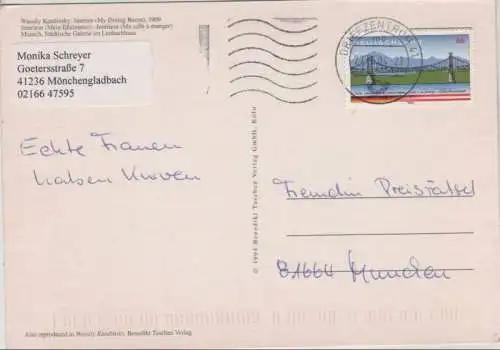 Wassily Kandinsky: Interior (My Dining Room), 1909
Interieur (Mein Eßzimmer) – Intérieur (Ma salle à manger)
Munich, Städtische Galerie im Lenbachhaus
Monika Schreyer
Goetersstraße 7
41236 Mönchengladbach
02166 47595
BRIEFZENTRUM 41
Echte Frauen
haben Kurven
© 1994 Benedikt Taschen Verlag GmbH, Köln
Freundin Preisrätsel
81664 München
Also reproduced in Wassily Kandinsky, Benedikt Taschen Verlag